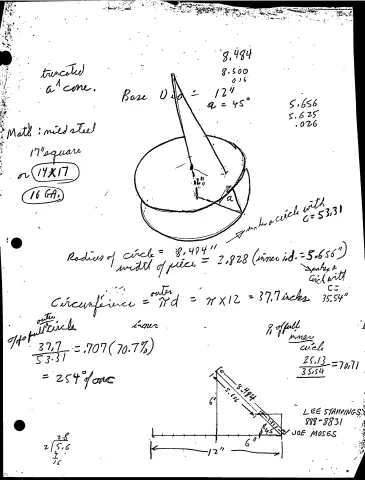 8.484
8.500
.016
truncated
a cone.
Base Dia = 12"
a = 45°
5.656
5.625
.026
Matl: mild steel
17" square
or 14X17
16 GA.
a
makes a circle with
C = 53.31
Radius of circle = 8.484"
width of piece = 2.828 (inner rad. = 5.656")
makes a
circle with
C =
35.54"
Circumference = outer πd = π X 12 = 37.7 inches
outer
% of full circle
37.7
53.31
= .707 (70.7%)
= 254° of arc
inner
% of full
inner
circle
25.13
35.54
= 70.71
8.484
5.656
6"
45°
6"
12"
LEE STANNINGS
888-8831
JOE MOSES
2.8
2 5.6
16